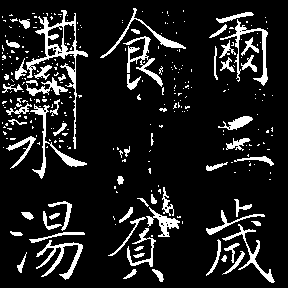 爾三歲
食貧
淇水湯